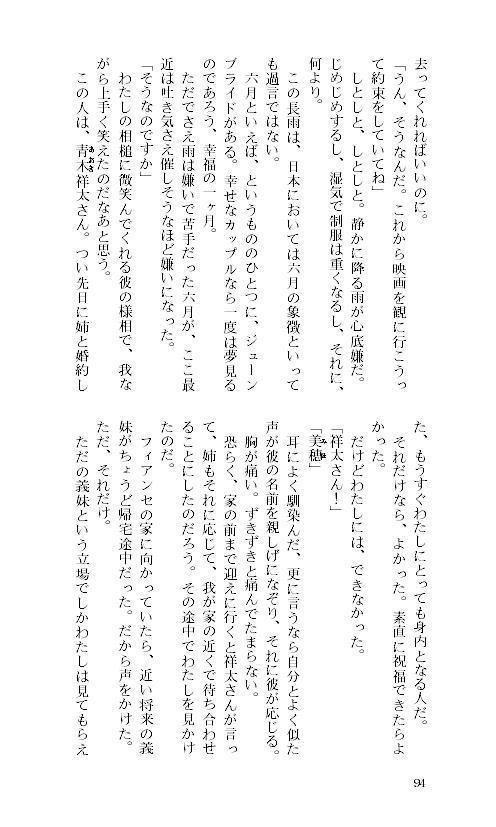 去ってくれればいいのに。
「うん、そうなんだ。これから映画を観に行こうっ
て約束をしていてね」
しとしと、しとしと。静かに降る雨が心底嫌だ。
じめじめするし、湿気で制服は重くなるし、それに、
何より。
この長雨は、日本においては六月の象徴といって
も過言ではない。
六月といえば、というもののひとつに、ジューン
ブライドがある。幸せなカップルなら一度は夢見る
のであろう、幸福の一ヶ月。
ただでさえ雨は嫌いで苦手だった六月が、ここ最
近は吐き気さえ催しそうなほど嫌いになった。
「そうなのですか」
わたしの相槌に微笑んでくれる彼の様相で、我な
がら上手く笑えたのだなあと思う。
この人は、青木祥太さん。つい先日に姉と婚約し
た、もうすぐわたしにとっても身内となる人だ。
それだけなら、よかった。素直に祝福できたらよ
かった。
だけどわたしには、できなかった。
「祥太さん！」
「美穂」
耳によく馴染んだ、更に言うなら自分とよく似た
声が彼の名前を親しげになぞり、それに彼が応じる。
胸が痛い。ずきずきと痛んでたまらない。
恐らく、家の前まで迎えに行くと祥太さんが言っ
て、姉もそれに応じて、我が家の近くで待ち合わせ
ることにしたのだろう。その途中でわたしを見かけ
たのだ。
フィアンセの家に向かっていたら、近い将来の義
妹がちょうど帰宅途中だった。だから声をかけた。
ただ、それだけ。
ただの義妹という立場でしかわたしは見てもらえ
94